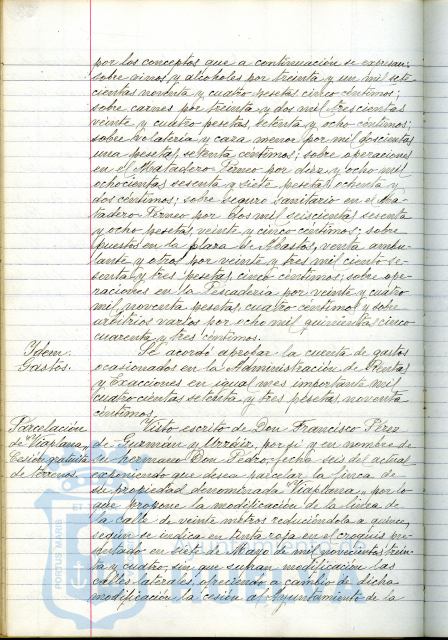 por los conceptos que a continuación se expresan:
sobre vinos y alcoholes por treinta y un mil sete-
cientas noventa y cuatro pesetas cinco céntimos;
sobre carnes por treinta y dos mil trescientas
veinte y cuatro pesetas, setenta y ocho céntimos;
sobre volatería y caza menor por mil doscientas
una pesetas, setenta céntimos; sobre operaciones
en el Matadero Férreo por diez y ocho mil
ochocientas sesenta y siete pesetas, ochenta y
dos céntimos; sobre seguro Sanitario en el Ma-
tadero Férreo por dos mil seiscientas sesenta
y ocho pesetas, veinte y cinco céntimos; sobre
puestos en la plaza de Abastos, venta ambu-
lante y otros por veinte y tres mil ciento se-
senta y tres pesetas, cinco céntimos; sobre ope-
raciones en la Pescadería por veinte y cuatro
mil noventa pesetas, cuatro céntimos y sobre
arbitrios varios por ocho mil quinientas cinco
cuarenta y tres céntimos.
Idem Se acordó aprobar la cuenta de gastos
Gastos. ocasionados en la Administración de Rentas
y Exacciones en igual mes importante mil
cuatrocientas setenta y tres pesetas noventa
céntimos.
Parcelación Visto escrito de Don Francisco Pérez
de Viaplana, de Guzmán y Urzáiz, por sí y en nombre de
Cesión gratuita su hermano Don Pedro, fecha seis del actual
de terrenos. exponiendo que desea parcelar la finca de
su propiedad denominada Viaplana, y por lo
que propone la modificación de la línea de
la calle de veinte metros reduciéndola a quince,
según se indica en tinta roja en el croquis pre-
sentado en siete de Mayo de mil novecientos trein-
ta y cuatro, sin que sufran modificación las
calles laterales, ofreciendo a cambio de dicha
modificación la cesión al Ayuntamiento de la
PORTUS MARIS